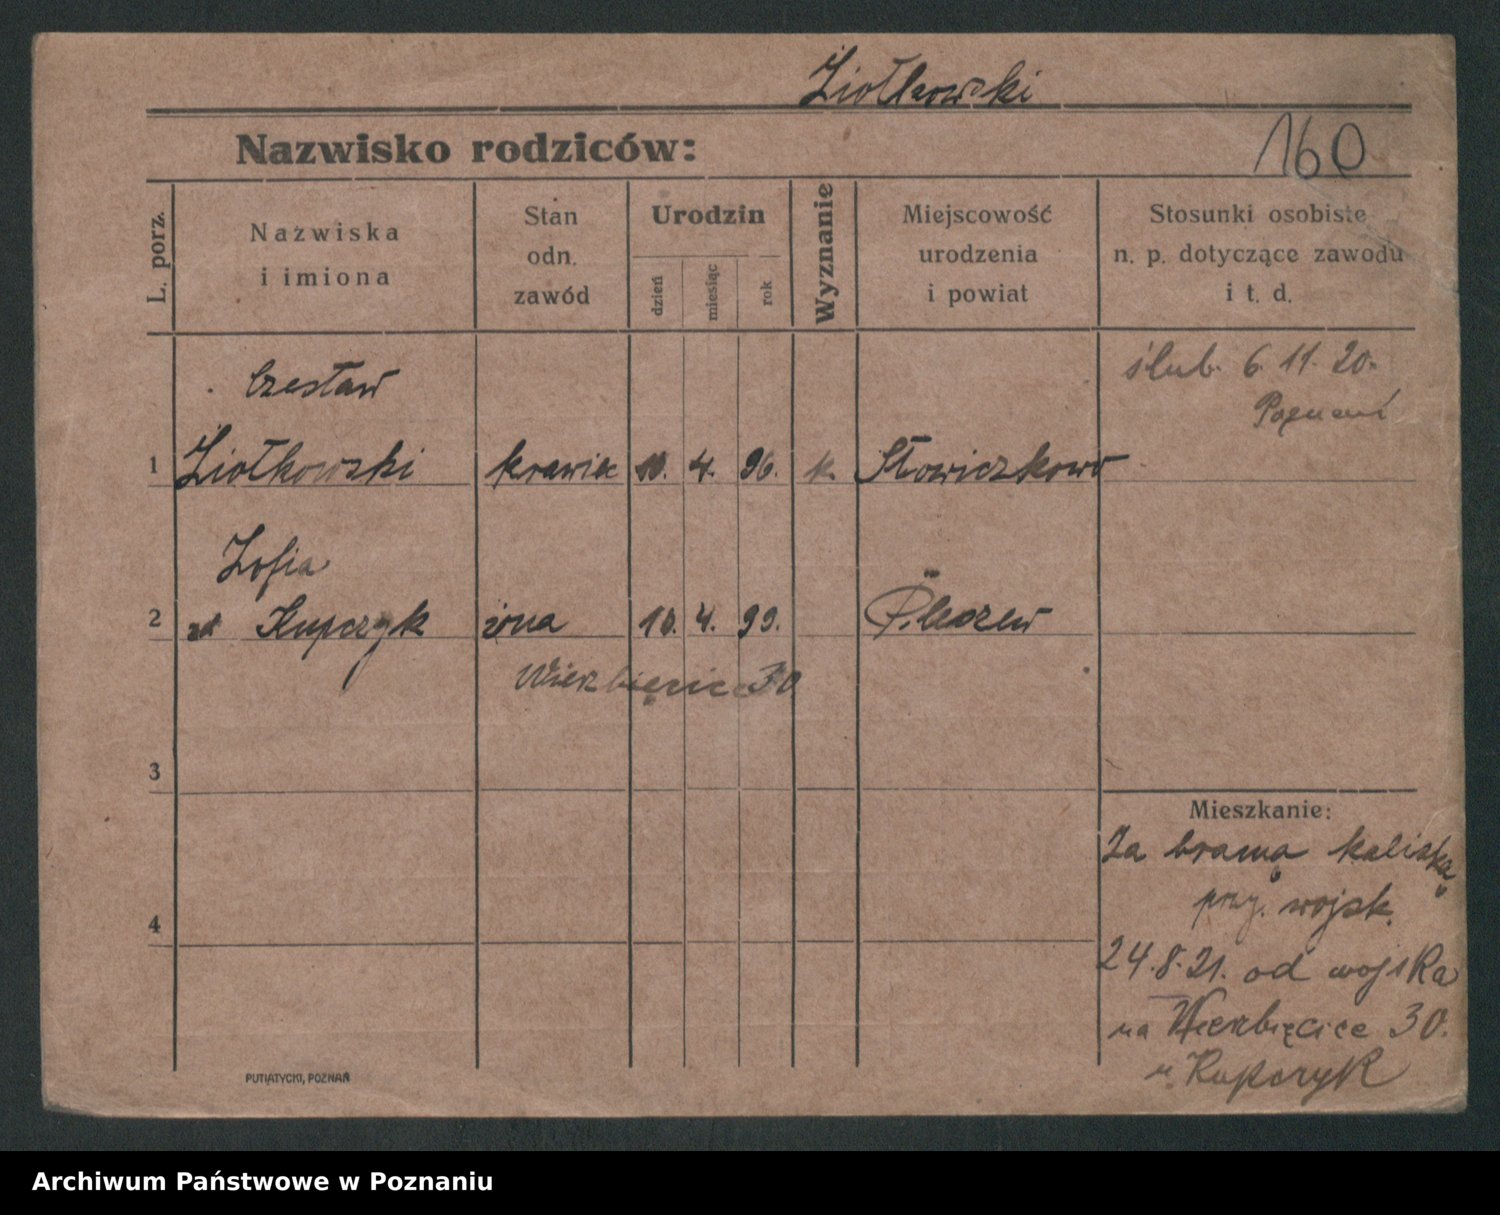 Ziołkowski
Nazwisko rodziców:
160
L. porz.
Nazwiska
i imiona
Stan
odn.
zawód
Urodzin
dzień
miesiąc
rok
Wyznanie
Miejscowość
urodzenia
i powiat
Stosunki osobiste
n. p. dotyczące zawodu
i t. d.
ślub. 6. 11. 20.
Poznań
Czesław
1 Ziołkowski krawiec 10. 4. 96. k. Słowiczkowo
Zofia
2 zd Kupczyk żona 10. 4. 99. Pleszew
Wierzbięcice 30
3
Mieszkanie:
Za bramą kaliską
przy. wojsk.
4
24.8.21. od wojska
na Wierzbięcice 30.
u. Kupczyk
PUTIATYCKI, POZNAŃ
Archiwum Państwowe w Poznaniu